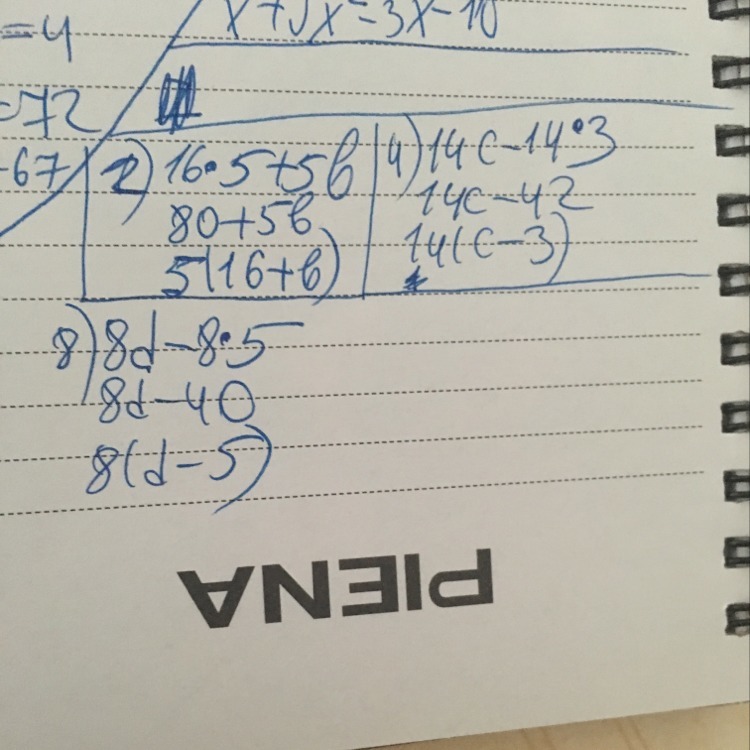 =4
x+5x=3x-10
=72
-67
2) 16•5+5b
80+5b
5(16+b)
4) 14c-14•3
14c-42
14(c-3)
8) 8d-8•5
8d-40
8(d-5)
PIENA